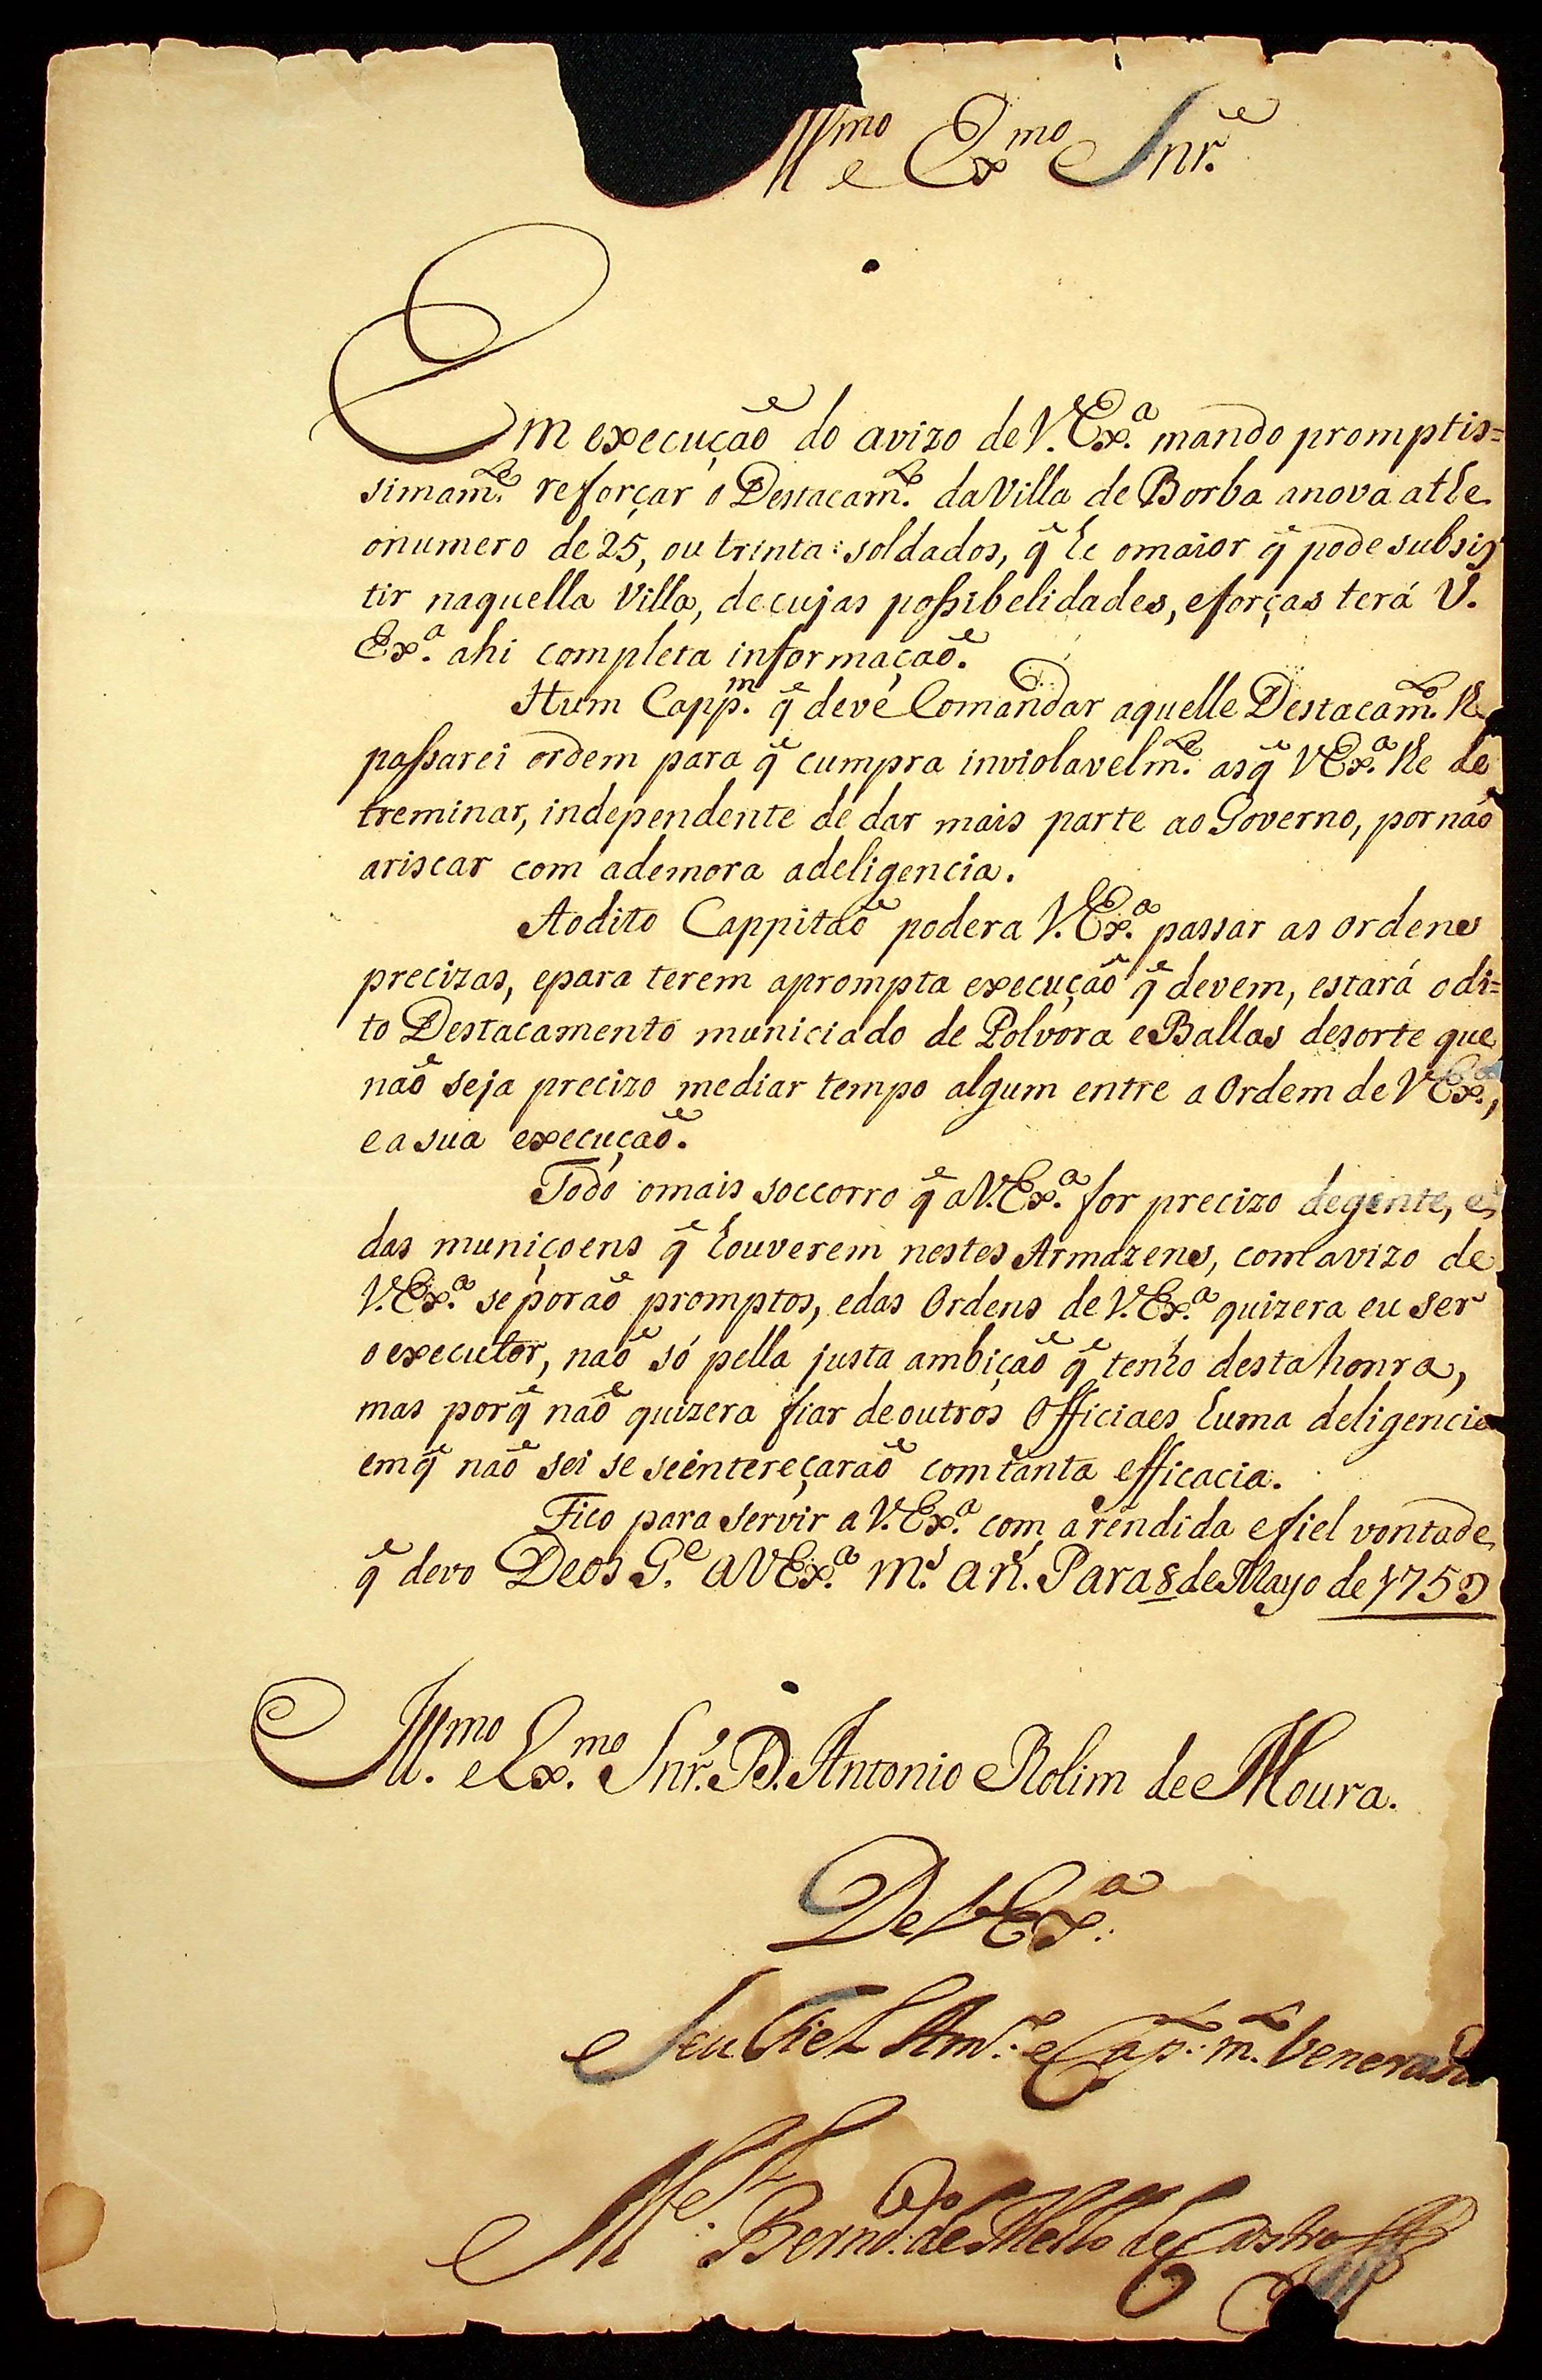 Ill.mo e Ex.mo Snr.
Em execução do avizo de V. Ex.a mando promptis=
simam.te reforçar o Destacam.to da Villa de Borba anova athe
onumero de 25, ou trinta soldados, q̃ he omaior q̃ pode subsis
tir naquella Villa, decujas possibelidades, eforças terá V.
Ex.a ahi completa informação.
Hum Capp.m q̃ deve Comandar aquelle Destacam.to lhe
passarei ordem para q̃ cumpra inviolavelm.te asq̃ V Ex.a lhe de
treminar, independente de dar mais parte ao Governo, por não
ariscar com ademora adeligencia.
Aodito Cappitaõ podera V. Ex.a passar as ordens
precizas, epara terem aprompta execução q̃ devem, estará odi=
to Destacamento municiado de Polvora e Ballas desorte que
não seja precizo mediar tempo algum entre a Ordem de V Ex.a,
e a sua execução.
Todo omais soccorro q̃ a V. Ex.a for precizo degente, e
das muniçoens q̃ houverem nestes Armazens, com avizo de
V. Ex.a se porão promptos, edas Ordens de V. Ex.a quizera eu ser
o executor, não só pella justa ambição q̃ tenho desta honra,
mas porq̃ não quizera fiar deoutros Officiaes huma deligencia
emq̃ não sei se seintereçarão comtanta efficacia.
Fico para servir a V. Ex.a com a rendida e fiel vontade
q̃ devo Deos G.e a V Ex.a m.s an.s Para 8 de Mayo de 1759
Ill.mo e Ex.mo Snr. D. Antonio Rolim de Moura.
De V Ex.a
Seu Fiel Am.o e Cap.to m.to Venerador
M.el Bern.do de Mello de Castro